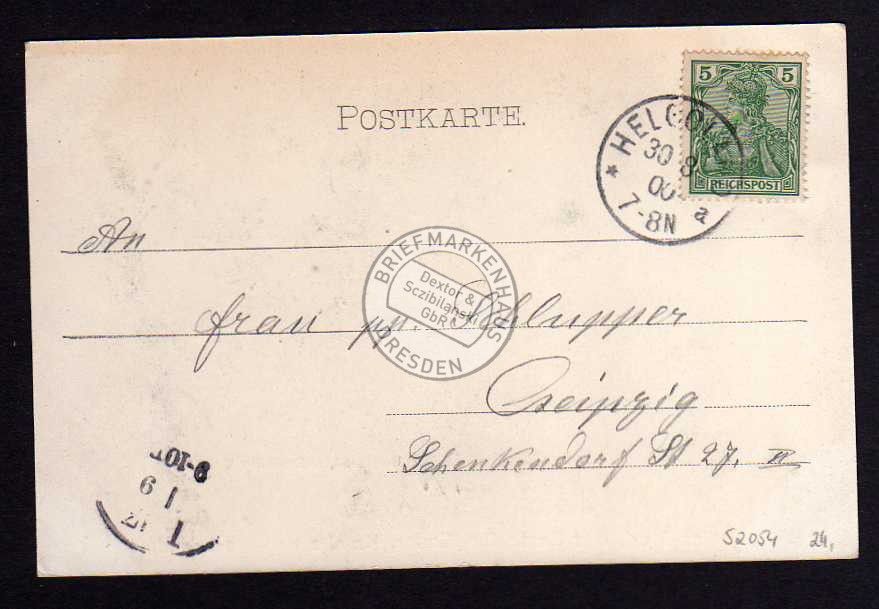 POSTKARTE.
5 5
REICHSPOST
HELGOL
30 8
00
7-8N a
An
Frau pp. Schlupper
Leipzig
Schenkendorf St 27. II
BRIEFMARKENHAUS
Dextor &
Sczibilanski
GbR
DRESDEN
9-10
1 9
52054 24,